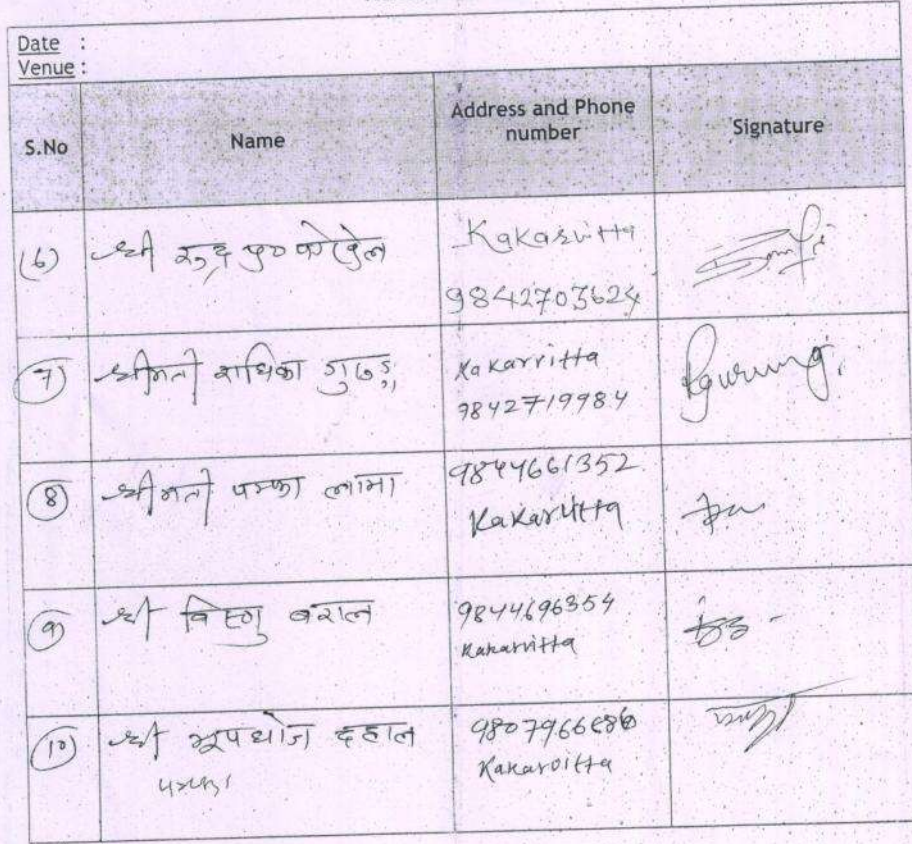 Date :
Venue :
S.No Name Address and Phone number Signature
(6) श्री रुद्र प्र० पोख्रेल Kakarvitta
9842703624
(7) श्रीमती राधिका गुरुङ Kakarvitta
9842719984 Rgurung.
(8) श्रीमती पम्फा लामा 9844661352
Kakarvitta
(9) श्री विष्णु बराल 9844696354
Kakarvitta
(10) श्री भूपधोज दहाल
Kakarvitta